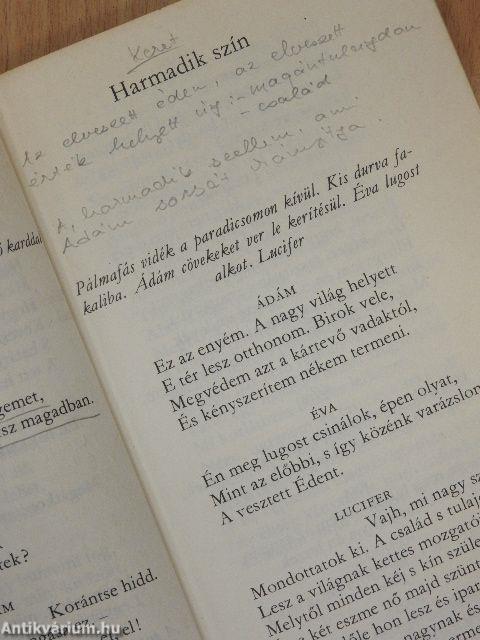 Keret
Harmadik szín
Az elveszett éden, az elveszett
érték helyett új: - magántulajdon
- család
A harmadik szellem, ami
Ádám sorsát irányítja.
Pálmafás vidék a paradicsomon kívül. Kis durva fa-
kaliba. Ádám cövekeket ver le kerítésül. Éva lugost
alkot. Lucifer
ÁDÁM
Ez az enyém. A nagy világ helyett
E tér lesz otthonom. Birok vele,
Megvédem azt a kártevő vadaktól,
És kényszerítem nékem teremni.
ÉVA
Én meg lugost csinálok, épen olyat,
Mint az előbbi, s így közénk varázslom
A vesztett Édent.
LUCIFER
Vajh, mi nagy sz
Mondottatok ki. A család s tulaj
Lesz a világnak kertes mozgató
Melytől minden kéj s kín szüle
két eszme nő majd szünt
le hon lesz és ipar
nagynak és
karddal
gemet,
sz magadban.
tek?
Korántse hidd.
pel!
Antikvárium.hu